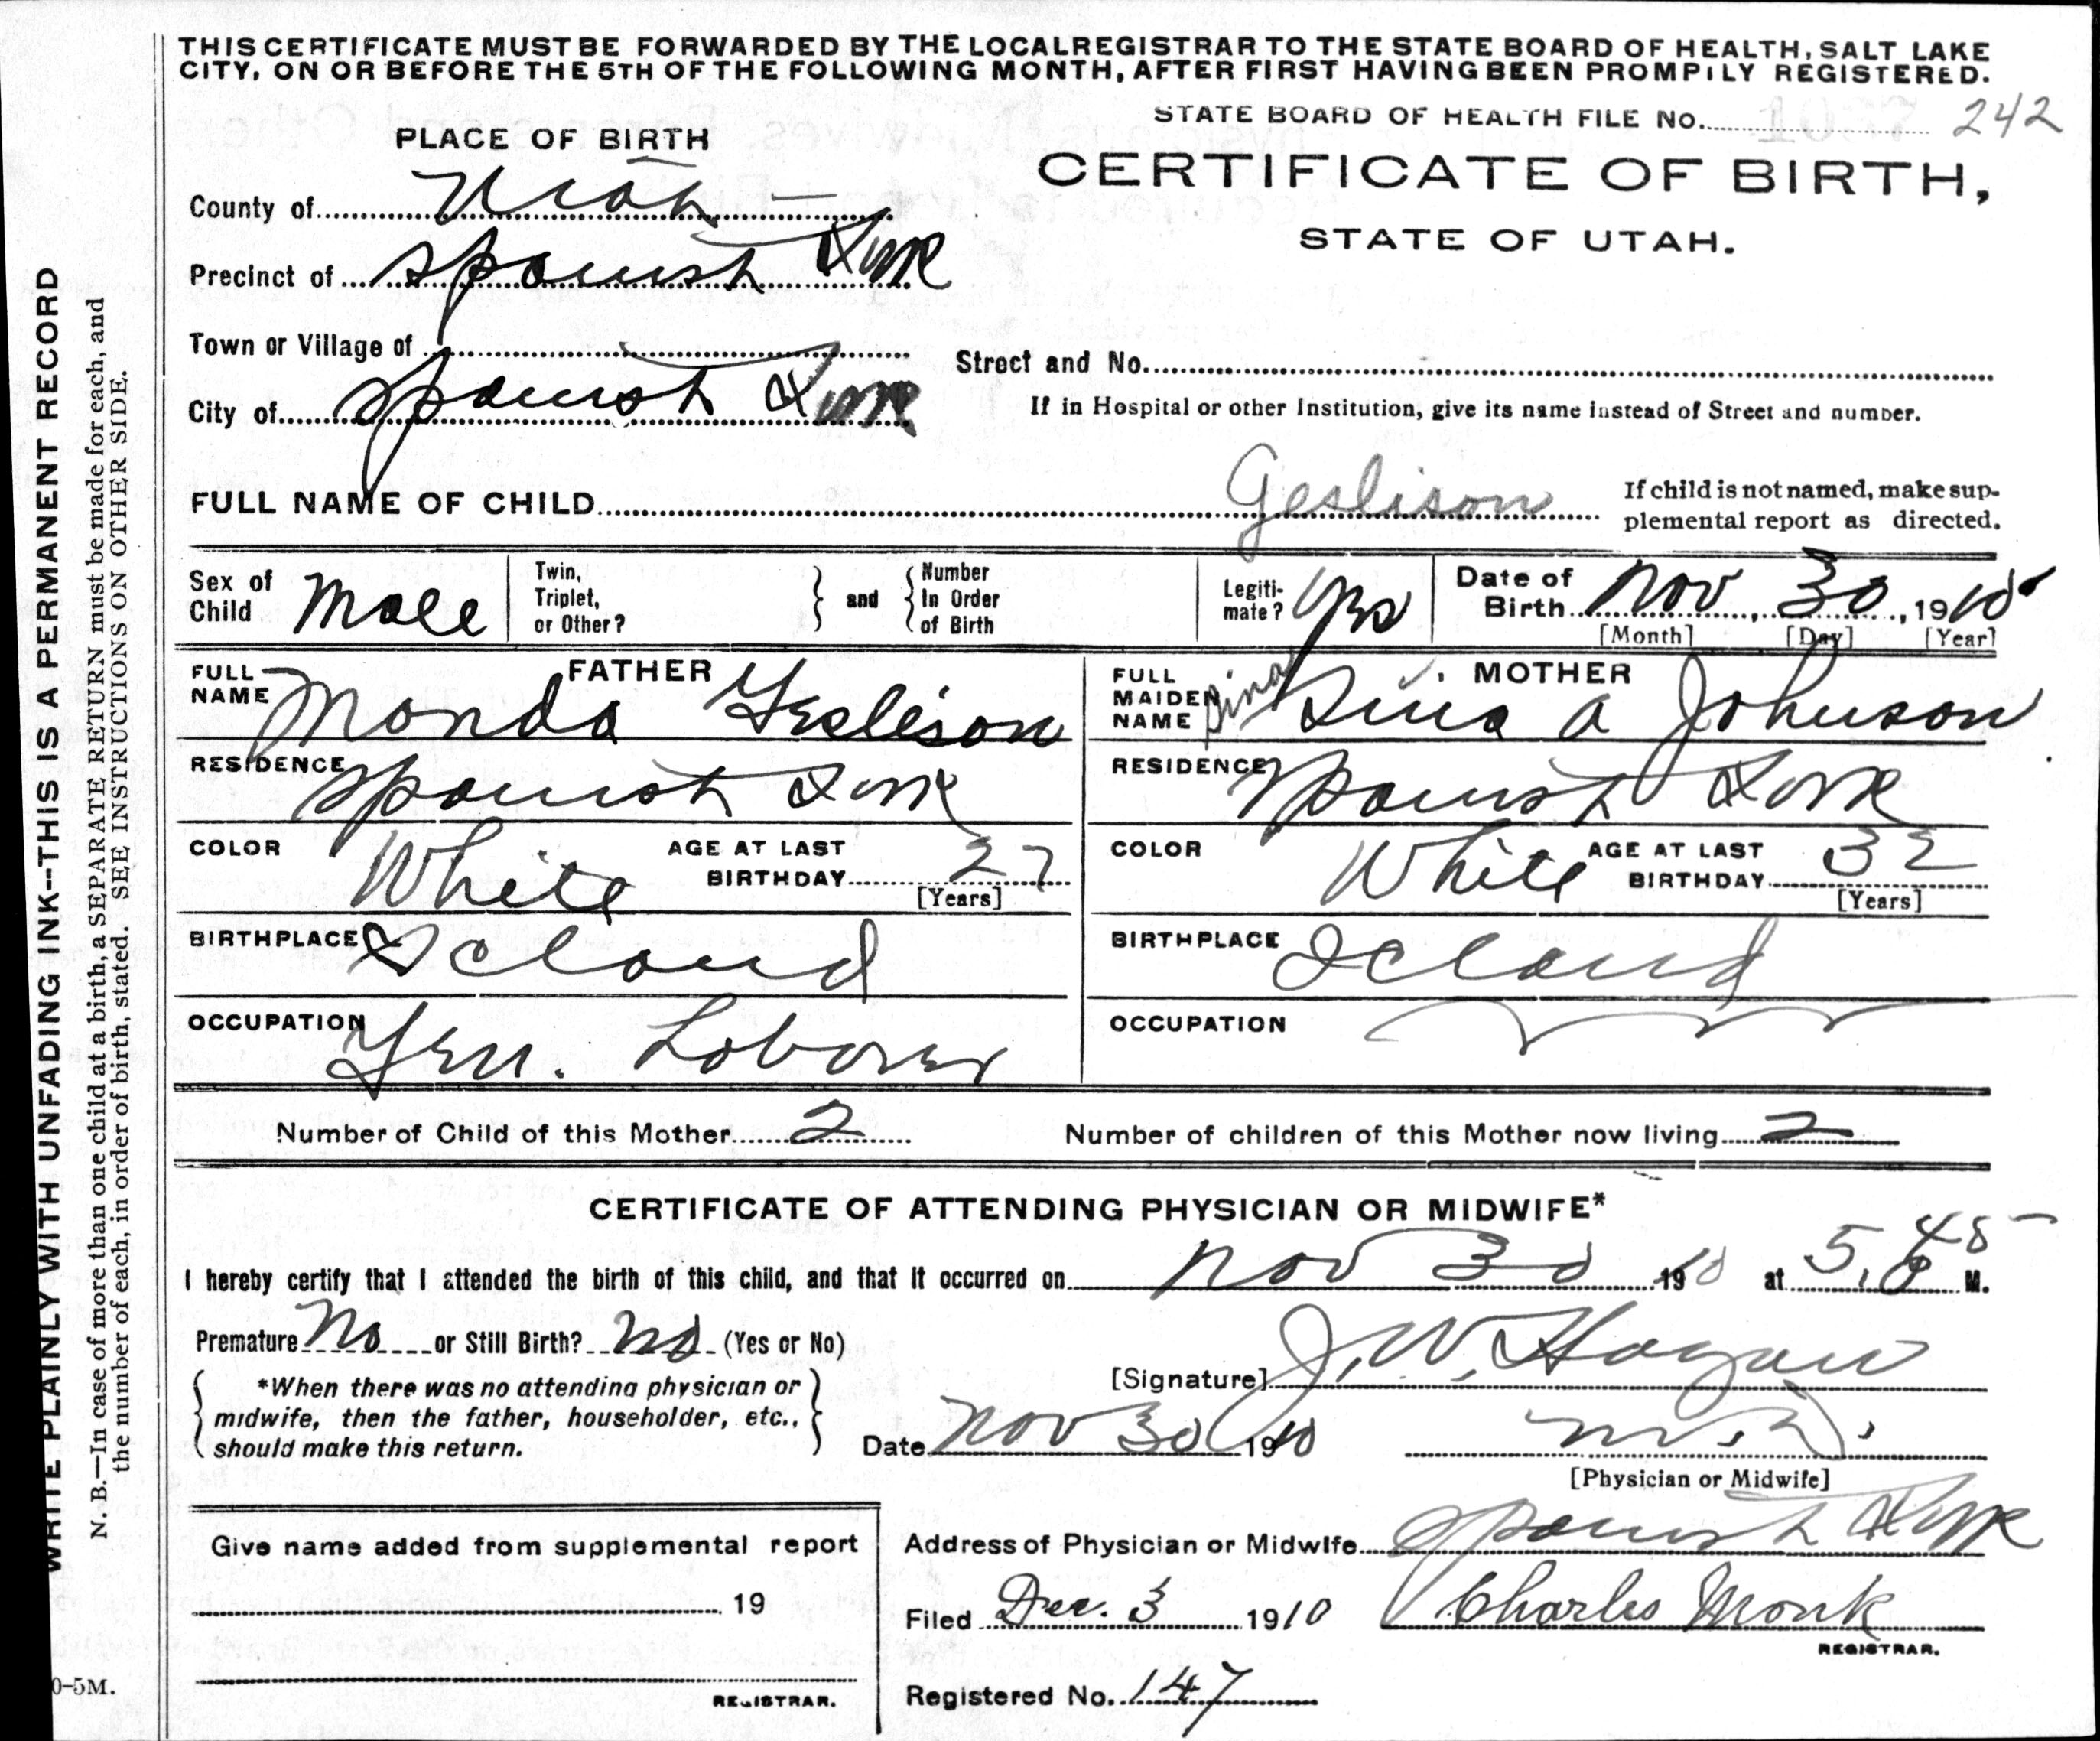 THIS CERTIFICATE MUST BE FORWARDED BY THE LOCAL REGISTRAR TO THE STATE BOARD OF HEALTH, SALT LAKE
CITY, ON OR BEFORE THE 5TH OF THE FOLLOWING MONTH, AFTER FIRST HAVING BEEN PROMPILY REGISTERED.
STATE BOARD OF HEALTH FILE No. 242
PLACE OF BIRTH
CERTIFICATE OF BIRTH,
STATE OF UTAH.
County of Utah
Precinct of Spanish Fork
Town or Village of
Street and No.
City of Spanish Fork
If in Hospital or other Institution, give its name instead of Street and number.
FULL NAME OF CHILD Geslison
If child is not named, make sup-
plemental report as directed.
Sex of Child Male
Twin, Triplet, or Other?
and
Number In Order of Birth
Legiti-mate? Yes
Date of Birth Nov 30, 1910
[Month] [Day] [Year]
FATHER
FULL NAME Monda Geslison
RESIDENCE Spanish Fork
COLOR White
AGE AT LAST BIRTHDAY 27
[Years]
BIRTHPLACE Icland
OCCUPATION Gen. Laborer
MOTHER
FULL MAIDEN NAME Sina Sina A Johnson
RESIDENCE Spanish Fork
COLOR White
AGE AT LAST BIRTHDAY 32
[Years]
BIRTHPLACE Icland
OCCUPATION
Number of Child of this Mother 2
Number of children of this Mother now living 2
CERTIFICATE OF ATTENDING PHYSICIAN OR MIDWIFE*
I hereby certify that I attended the birth of this child, and that it occurred on Nov 30 1910 at 5,45 M.
Premature No or Still Birth? No (Yes or No)
[Signature] J. W. Hagan
*When there was no attending physician or
midwife, then the father, householder, etc.,
should make this return.
Date Nov 30 1910
M.D.
[Physician or Midwife]
Give name added from supplemental report
19
REGISTRAR.
Address of Physician or Midwife Spanish Fork
Filed Dec. 3 1910 Charles Monk
REGISTRAR.
Registered No. 147
WRITE PLAINLY WITH UNFADING INK--THIS IS A PERMANENT RECORD
N. B.—In case of more than one child at a birth, a SEPARATE RETURN must be made for each, and
the number of each, in order of birth, stated. SEE INSTRUCTIONS ON OTHER SIDE.
0-5M.